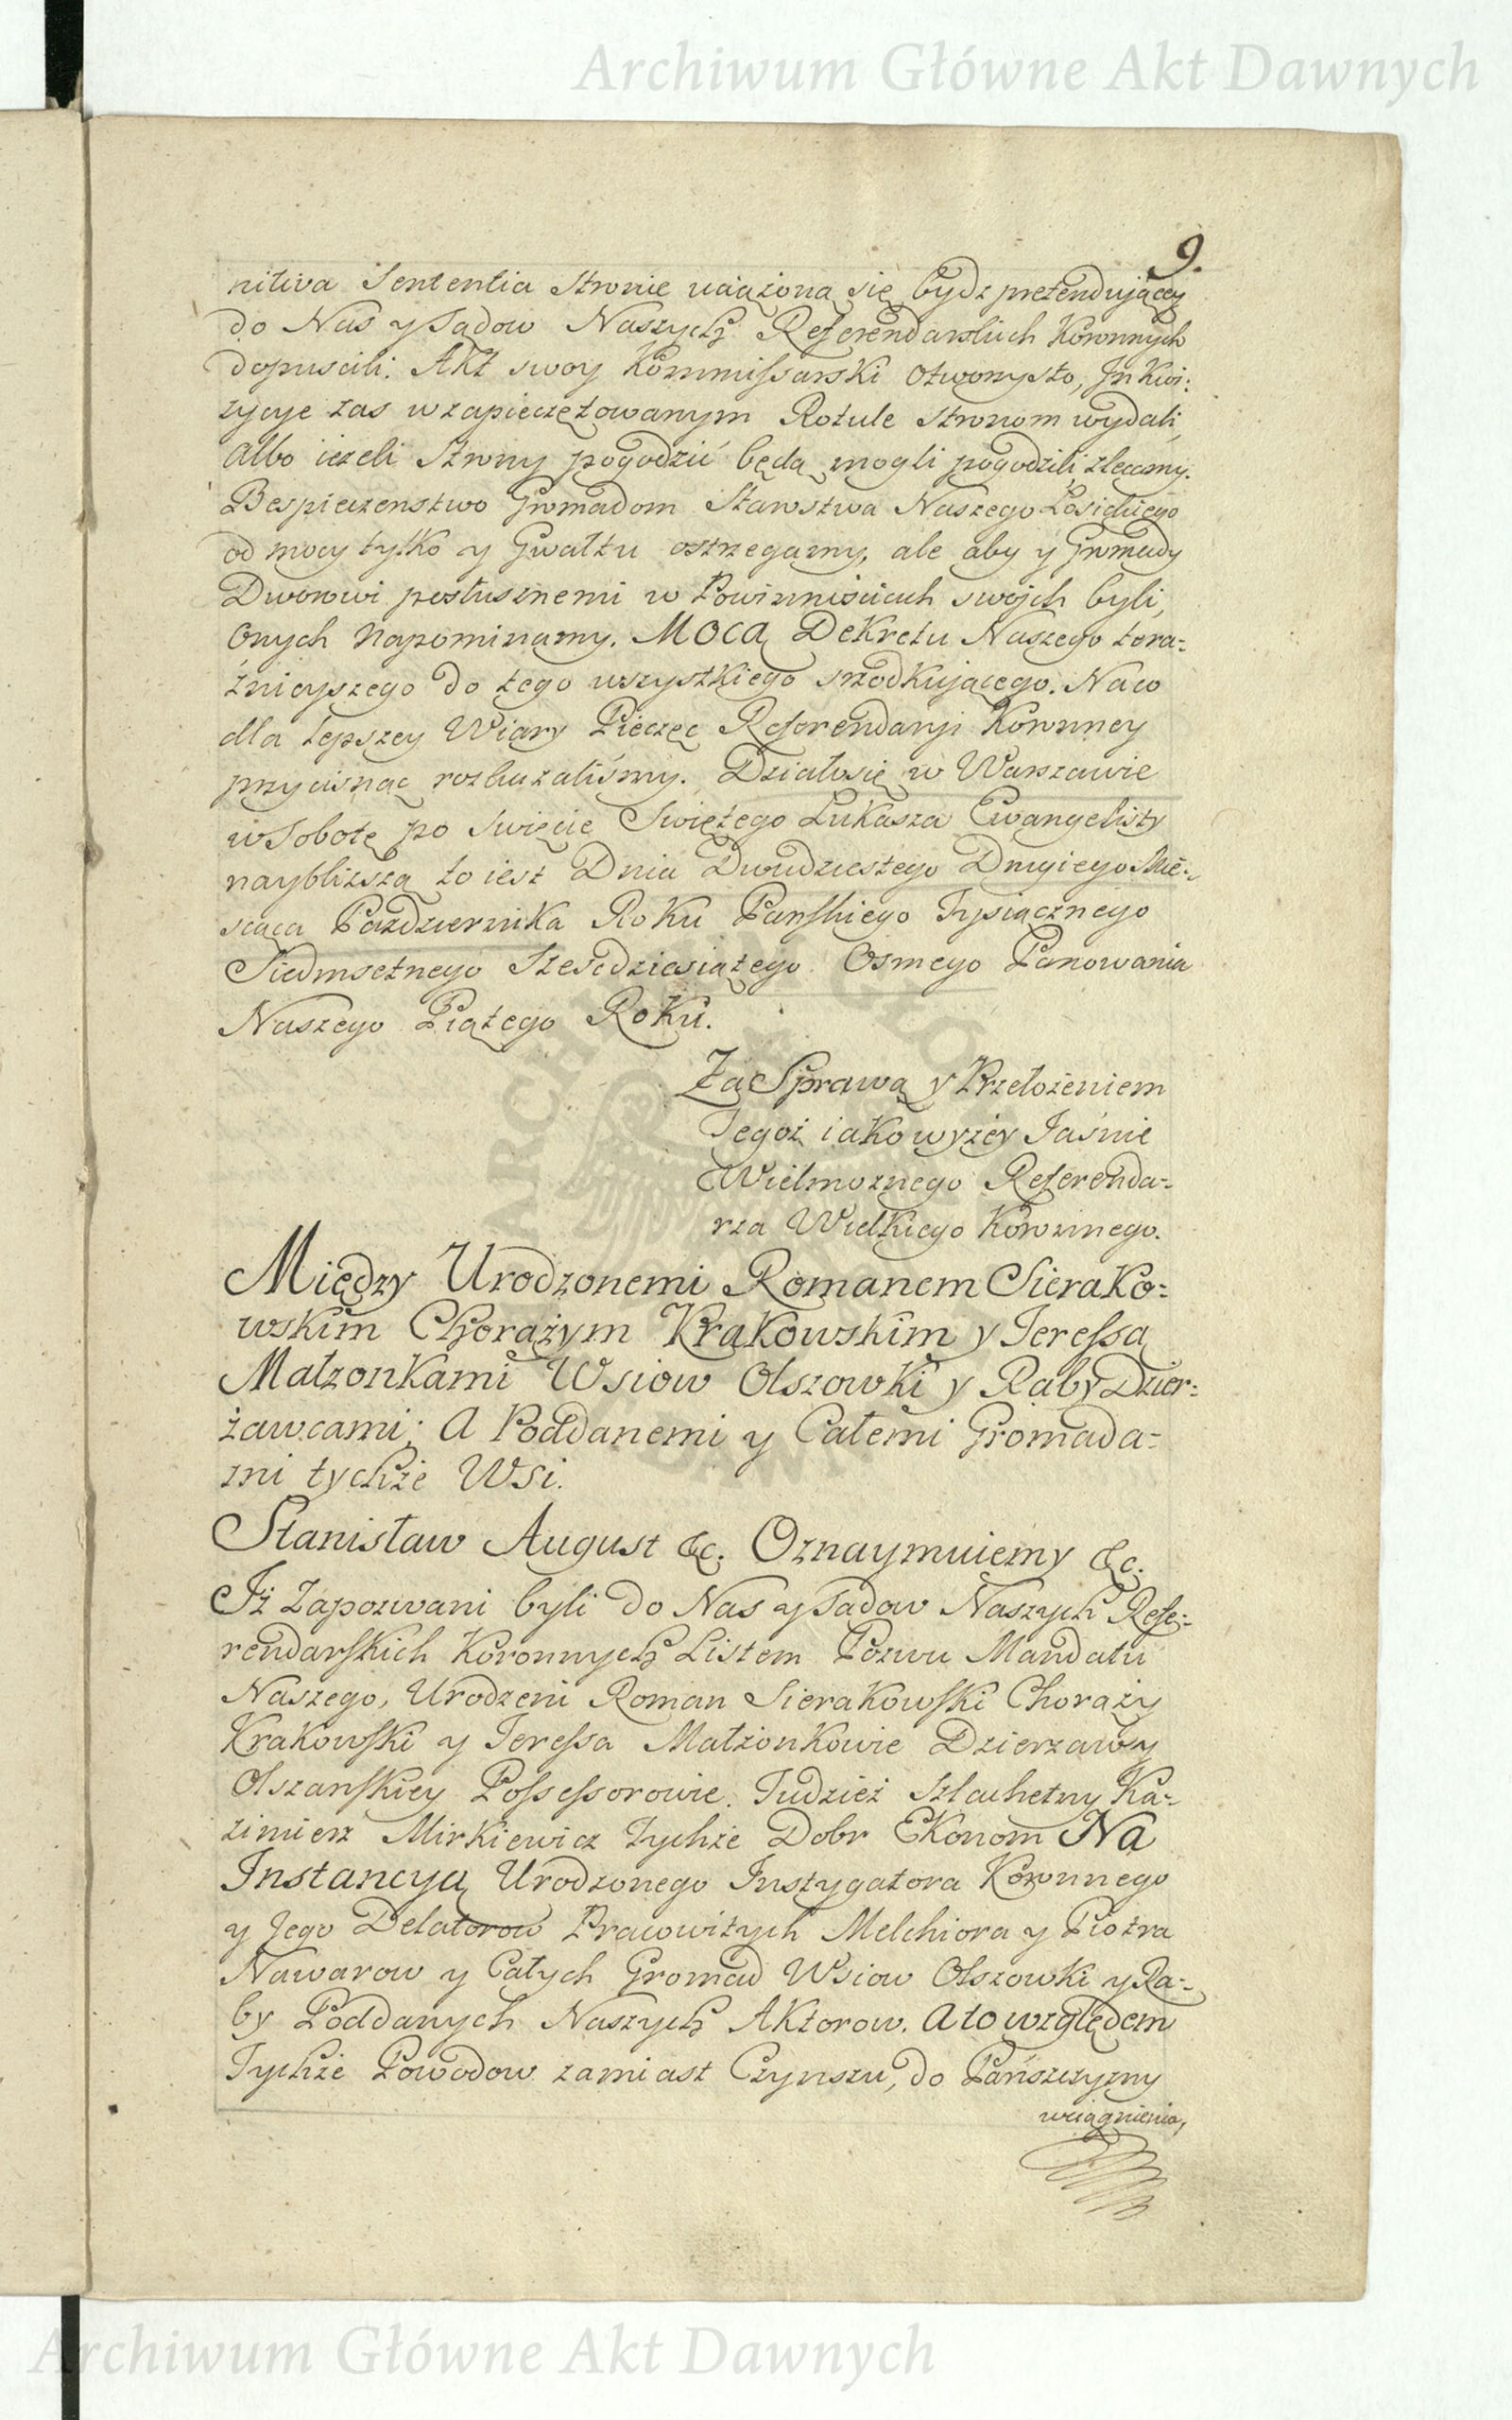 Archiwum Główne Akt Dawnych
9.
nitiva Sententia Stronie uciążoną się bydz pretenduiącey
do Nas y Sądow Naszych Referendarskich Koronnych
dopuscili. Akt swoy Kommissarski otworzysto, Inkwi:
zycye zas w zapieczętowanym Rotule Stronom wydali,
albo ieżeli Strony pogodzić będą mogli pogodzili, zlecamy.
Bespieczenstwo Gromadom Starostwa Naszego Łosickiego
od mocy tylko y Gwałtu ostrzegamy, ale aby y Gromady
Dworowi posłusznemi w Powinnościach swoich byli,
onych napominamy. Mocą Dekretu Naszego tera=
źnieyszego do tego wszystkiego srzodkującego. Na co
dla lepszey Wiary Pieczęc Referendaryi Koronney
przycisnąc rozkazaliśmy. Działosię w Warszawie
w Sobotę po Swięcie Swiętego Łukasza Ewangelisty
naybliższą to iest Dnia Dwudziestego Drugiego Mie:
siąca Pazdziernika Roku Panskiego Tysiącznego
Siedmsetnego Szescdziesiątego Osmego Panowania
Naszego Piątego Roku.
Za Sprawą y Przełożeniem
Tegoż iako wyżey Jaśnie
Wielmoznego Referenda=
rza Wielkiego Koronnego.
Między Urodzonemi Romanem Sierako=
wskim Chorążym Krakowskim y Teressą
Małzonkami Wsiow Olszowki y Raby Dzier=
żawcami; a Poddanemi y Całemi Gromada=
mi tychże Wsi.
Stanisław August &c. Oznaymuiemy &c.
Iż Zapozwani byli do Nas y Sadow Naszych Refe=
rendarskich Koronnych Listem Pozwu Mandatu
Naszego, Urodzeni Roman Sierakowski Chorąży
Krakowski y Teressa Małżonkowie Dzierzawy
Olszanskiey Possessorowie. Tudzież Szlachetny Ka=
zimierz Mirkiewicz Tychże Dobr Ekonom Na
Instancyą Urodzonego Instygatora Koronnego
y Jego Delatorow Pracowitych Melchiora y Piotra
Nawarow y Całych Gromad Wsiow Olszowki y Ra=
by Poddanych Naszych Aktorow. A to względem
Tychże Powodow zamiast Czynszu, do Pańszczyzny
wciągnienia,
Archiwum Główne Akt Dawnych